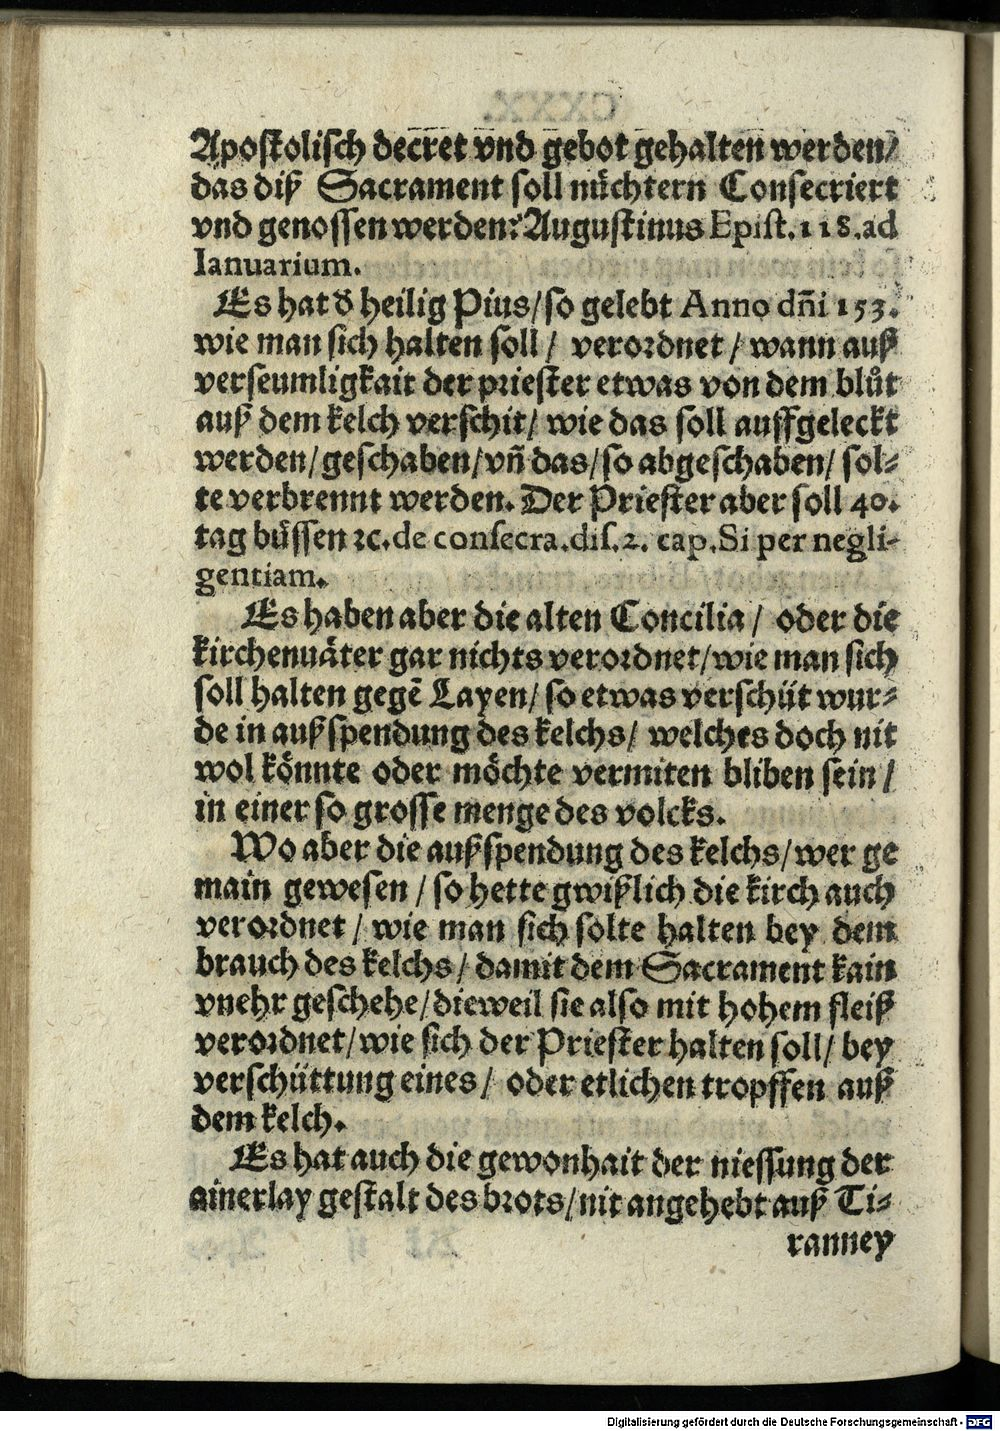 Apostolisch decret vnd gebot gehalten werden/
das diß Sacrament soll nüchtern Consecriert
vnd genossen werden? Augustinus Epist. 118. ad
Ianuarium.
Es hat d̕ heilig Pius/ so gelebt Anno dñi 153.
wie man sich halten soll/ verordnet/ wann auß
verseumligkait der priester etwas von dem blůt
auß dem kelch verschit/ wie das soll auffgeleckt
werden/ geschaben/ vñ das/ so abgeschaben/ sol⸗
te verbrennt werden. Der Priester aber soll 40.
tag büssen ꝛc. de consecra. dis. 2. cap. Si per negli-
gentiam.
Es haben aber die alten Concilia/ oder die
kirchenuäter gar nichts verordnet/ wie man sich
soll halten gegē Layen/ so etwas verschüt wur⸗
de in außspendung des kelchs/ welches doch nit
wol könnte oder möchte vermiten bliben sein/
in einer so grosse menge des volcks.
Wo aber die außspendung des kelchs/ wer ge
main gewesen/ so hette gwißlich die kirch auch
verordnet/ wie man sich solte halten bey dem
brauch des kelchs/ damit dem Sacrament kain
vnehr geschehe/ dieweil sie also mit hohem fleiß
verordnet/ wie sich der Priester halten soll/ bey
verschüttung eines/ oder etlichen tropffen auß
dem kelch.
Es hat auch die gewonhait der niessung der
ainerlay gestalt des brots/ nit angehebt auß Ti⸗
ranney
Digitalisierung gefördert durch die Deutsche Forschungsgemeinschaft - DFG